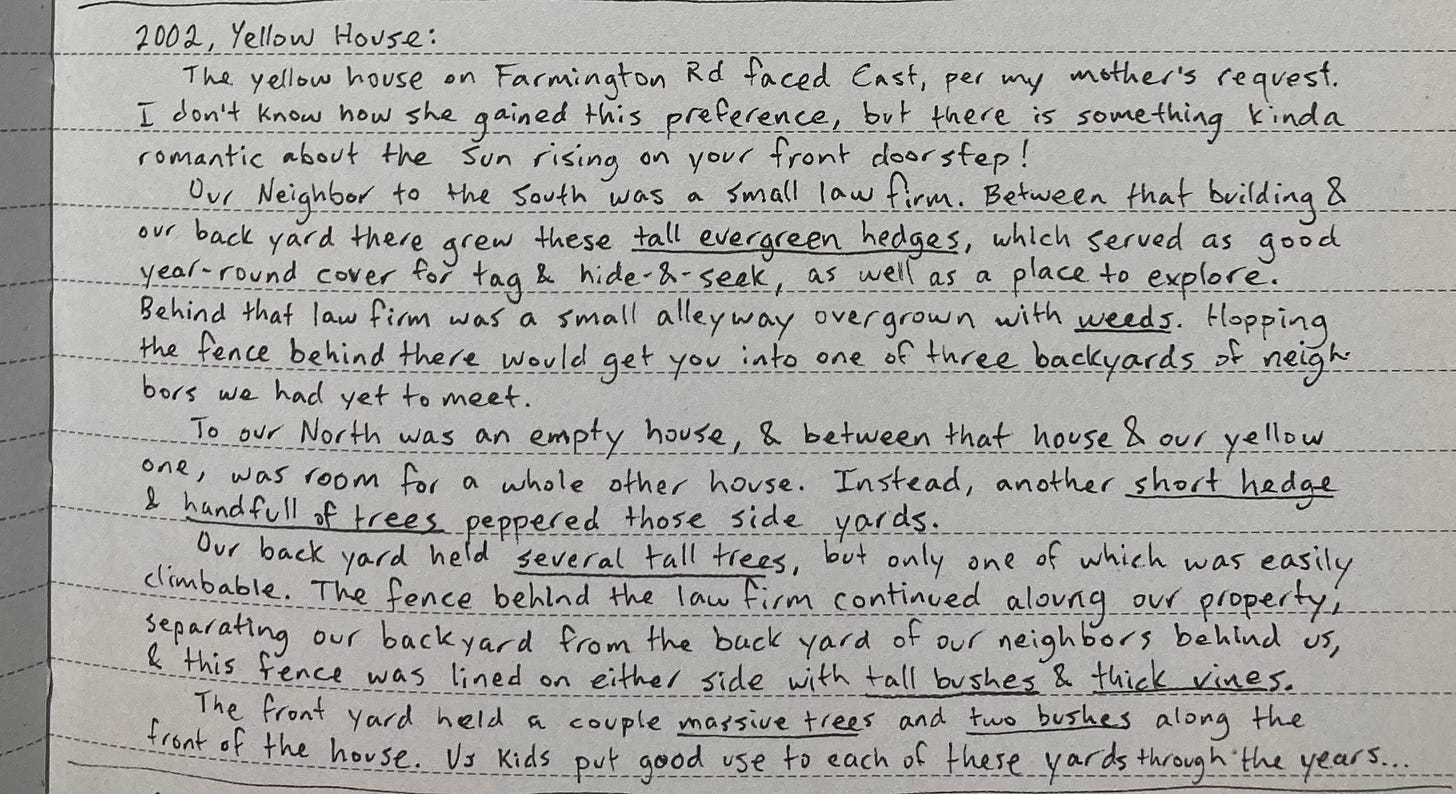 2002, Yellow House:
The yellow house on Farmington Rd faced East, per my mother's request.
I don't know how she gained this preference, but there is something kinda
romantic about the sun rising on your front doorstep!
Our Neighbor to the South was a small law firm. Between that building &
our back yard there grew these tall evergreen hedges, which served as good
year-round cover for tag & hide-&-seek, as well as a place to explore.
Behind that law firm was a small alleyway overgrown with weeds. Hopping
the fence behind there would get you into one of three backyards of neigh-
bors we had yet to meet.
To our North was an empty house, & between that house & our yellow
one, was room for a whole other house. Instead, another short hedge
& handfull of trees peppered those side yards.
Our back yard held several tall trees, but only one of which was easily
climbable. The fence behind the law firm continued alovng our property,
separating our backyard from the back yard of our neighbors behind us,
& this fence was lined on either side with tall bushes & thick vines.
The front yard held a couple massive trees and two bushes along the
front of the house. Us kids put good use to each of these yards through the years...